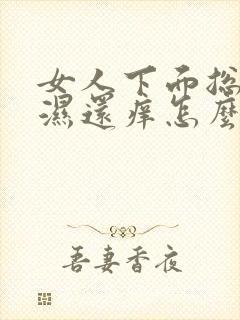 女人下面总
濕還痒怎麼
吾妻香夜